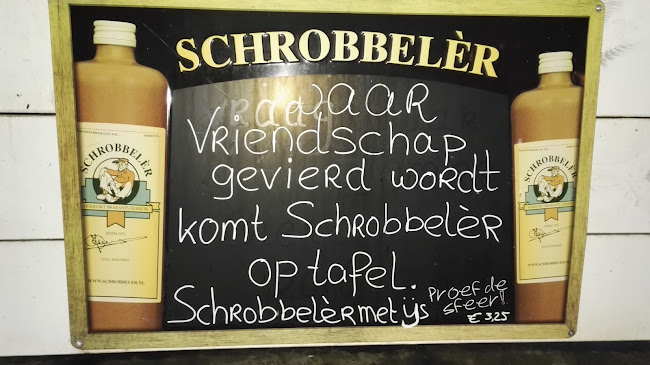 SCHROBBELÈR
WAAR
Vriendschap
gevierd wordt
komt Schrobbelèr
op tafel.
Schrobbelèrmetijs
Proef de
sfeer!!
€ 3,25
SCHROBBELÈR
WWW.SCHROBBELER.NL
SCHROBBELÈR
WWW.SCHROBBELER.NL